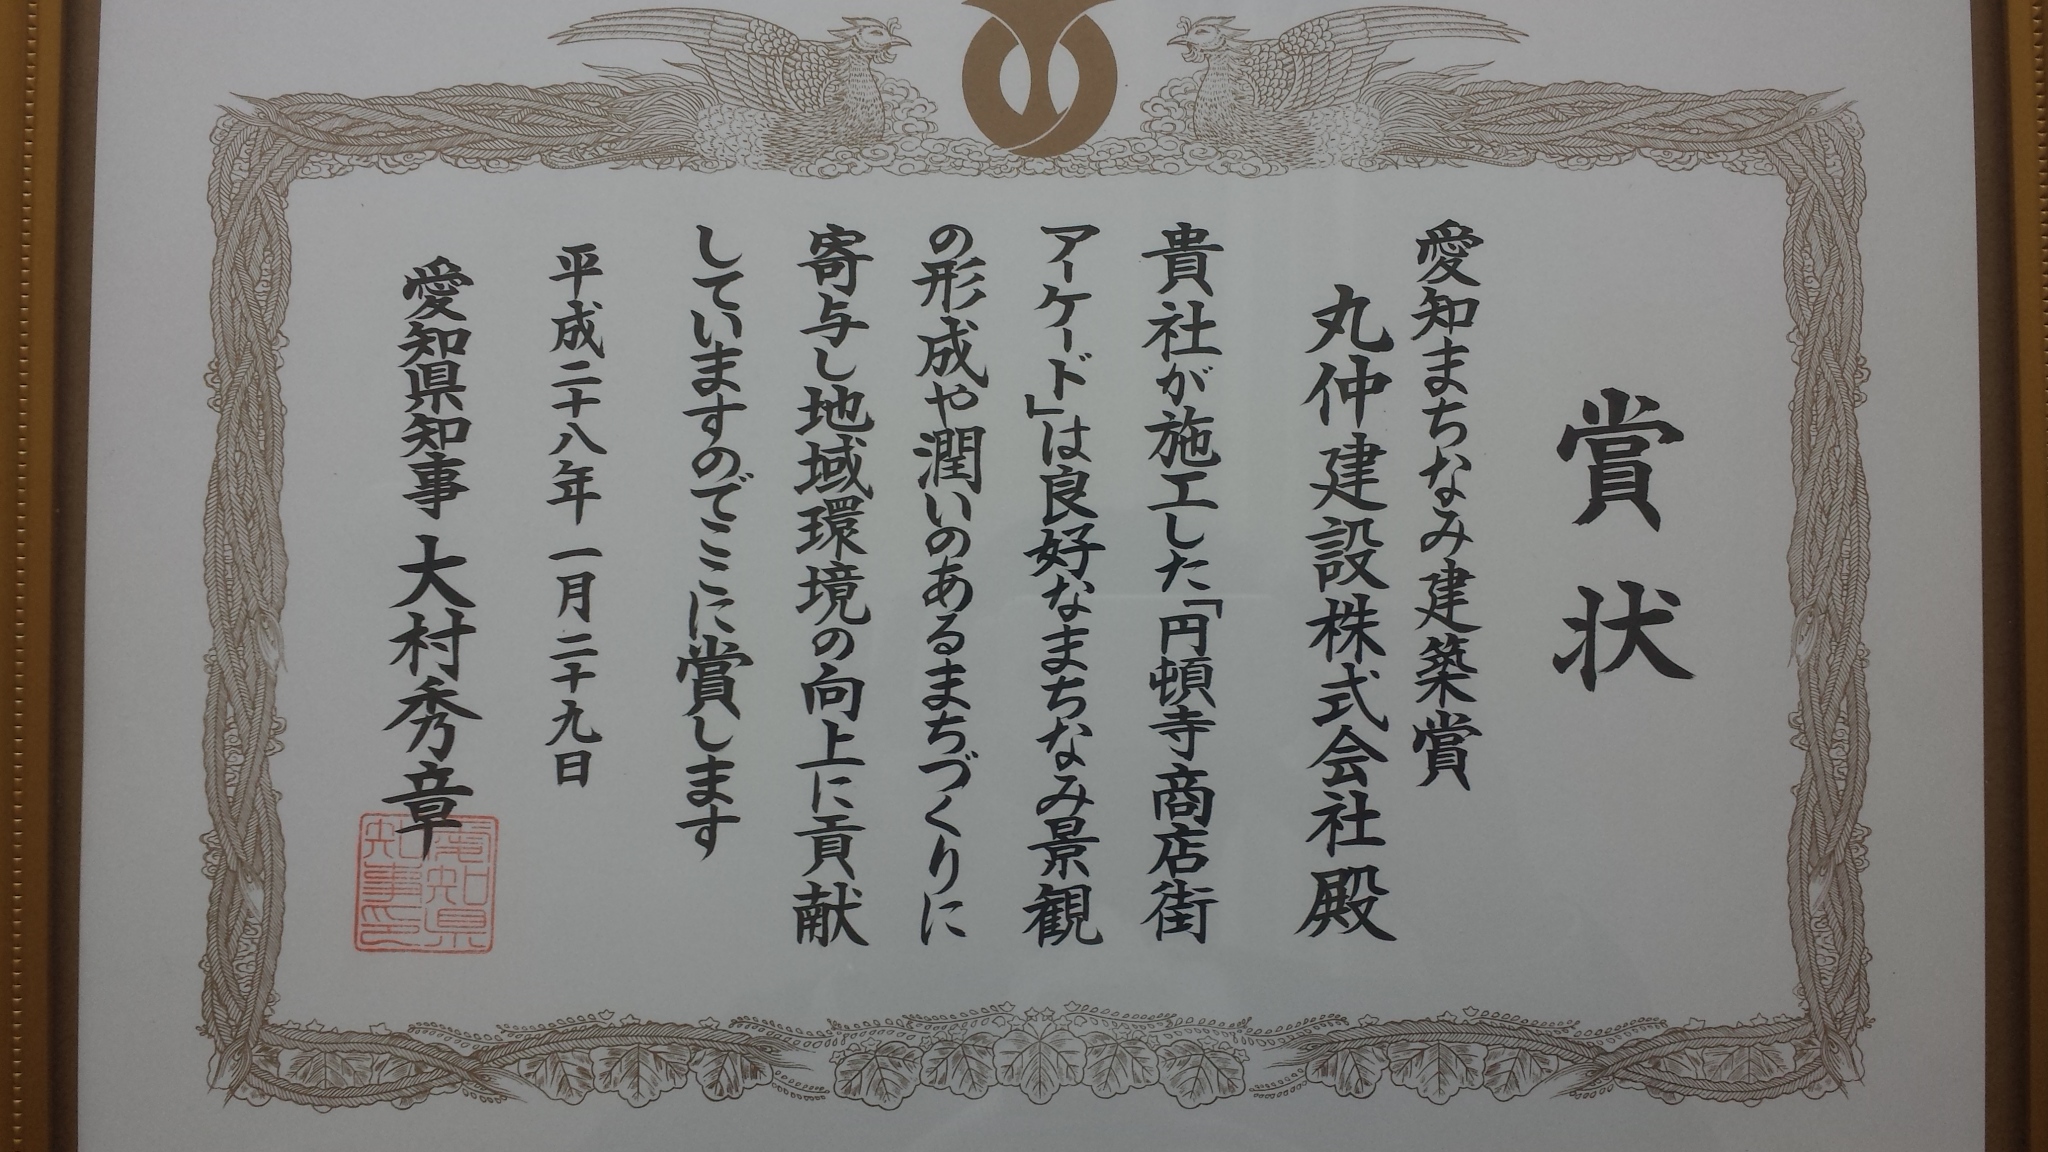 賞状
愛知まちなみ建築賞
丸仲建設株式会社殿
貴社が施工した「円頓寺商店街
アーケード」は良好なまちなみ景観
の形成や潤いのあるまちづくりに
寄与し地域環境の向上に貢献
していますのでここに賞します
平成二十八年一月二十九日
愛知県知事 大村秀章
愛知県
知事印